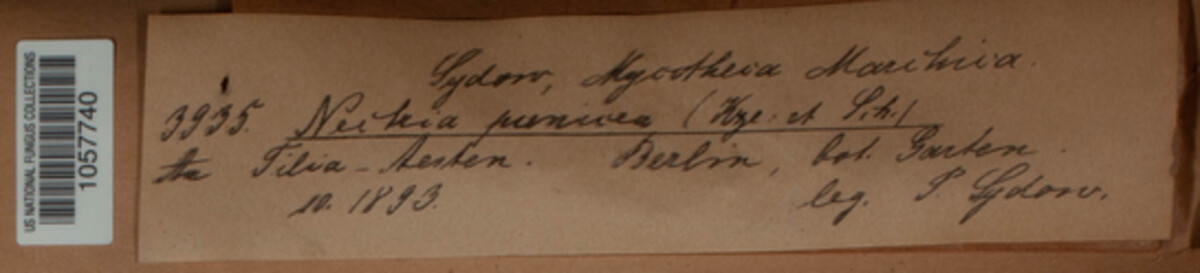 US NATIONAL FUNGUS COLLECTIONS
1057740
Sydow, Mycotheca Marchica.
3935. Nectria punicea (Kze. et Sch.)
An Tilia-Aesten. Berlin, bot. Garten.
10. 1893. leg. P. Sydow.